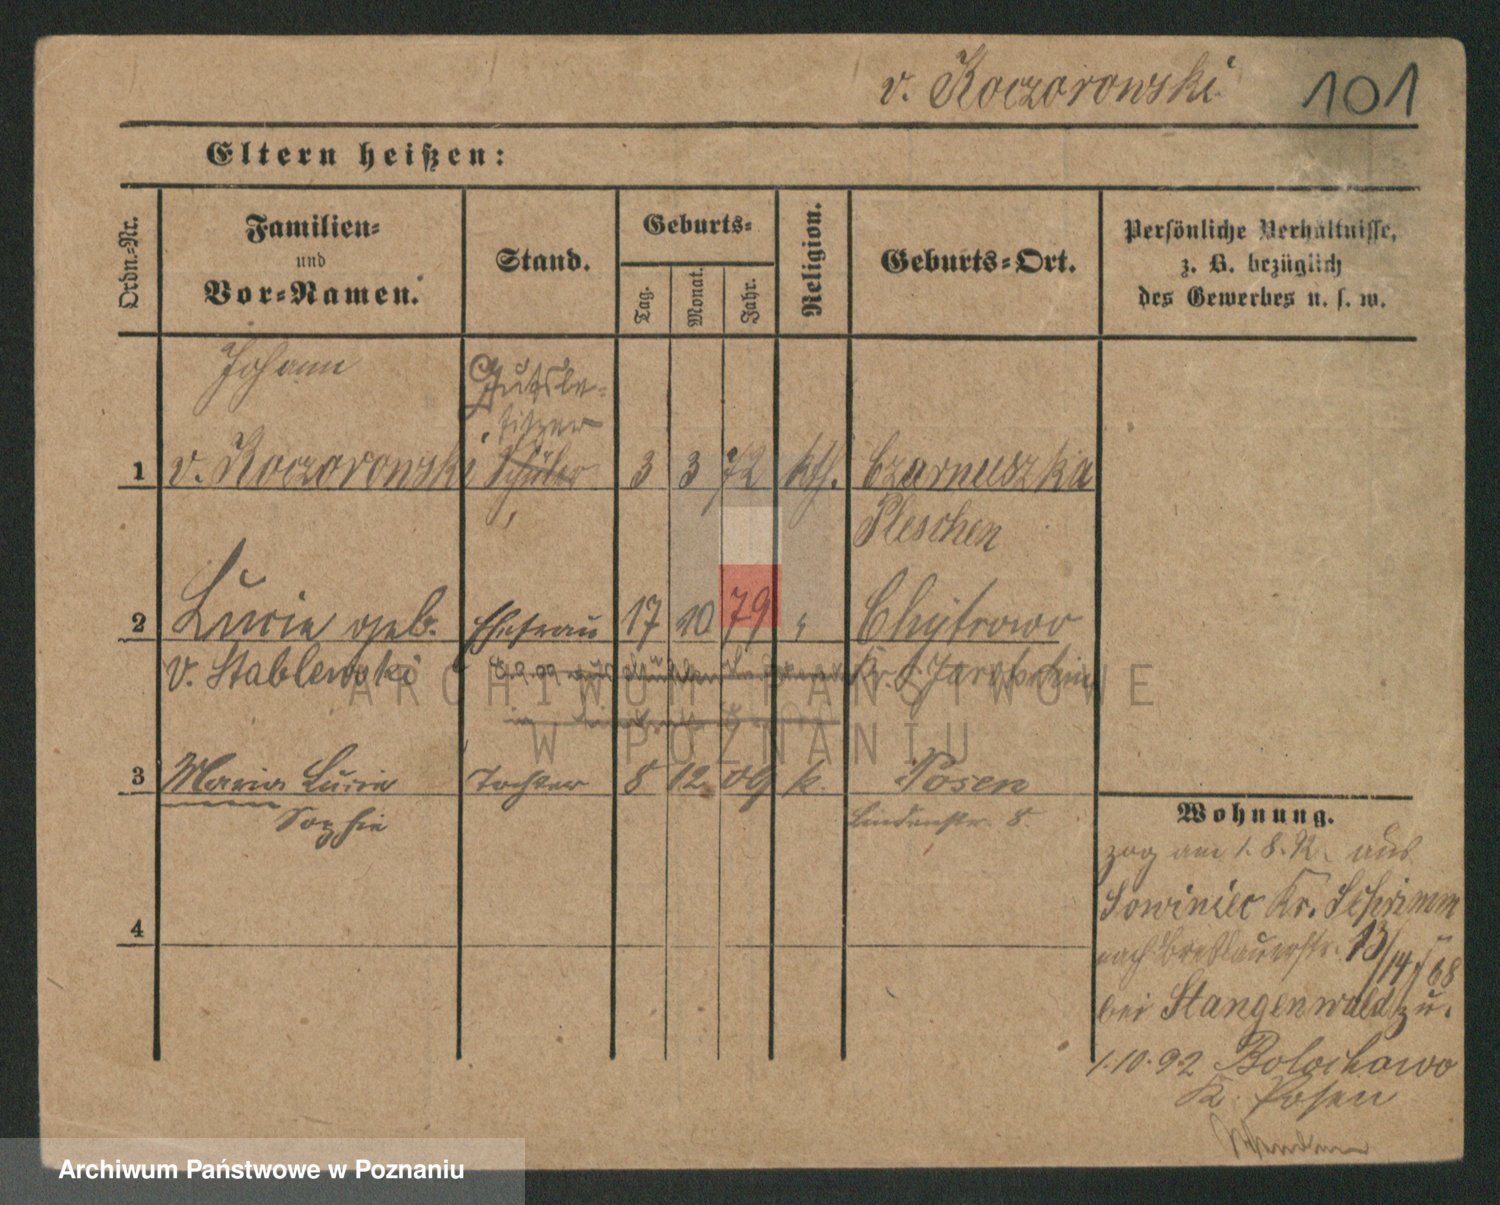 v. Koczorowski 101
Eltern heißen:
Ordn.-Nr.
Familien-
und
Vor-Namen.
Stand.
Geburts-
Tag.
Monat.
Jahr.
Religion.
Geburts-Ort.
Persönliche Verhältnisse,
z. B. bezüglich
des Gewerbes u. s. w.
Johann Gutsbe-
sitzer
1 v. Koczorowski Schüler 3 3 72 kth. Czarnuszka
Pleschen
2 Lucie geb. Ehefrau 17 10 79 " Chytrowo
v. Stablewski Kr. Jarotschin
3 Maria Lucie Tochter 8 12 09 k. Posen
Sophie Lindenstr. 8
Wohnung.
zog am 1.8. aus
Sowiniec Kr. Schrimm
4
nach Breslauerstr. 13/14
bei Stangenwald zu.
1.10.92 Bolechowo
K. Posen
ARCHIWUM PAŃSTWOWE
W POZNANIU
Archiwum Państwowe w Poznaniu